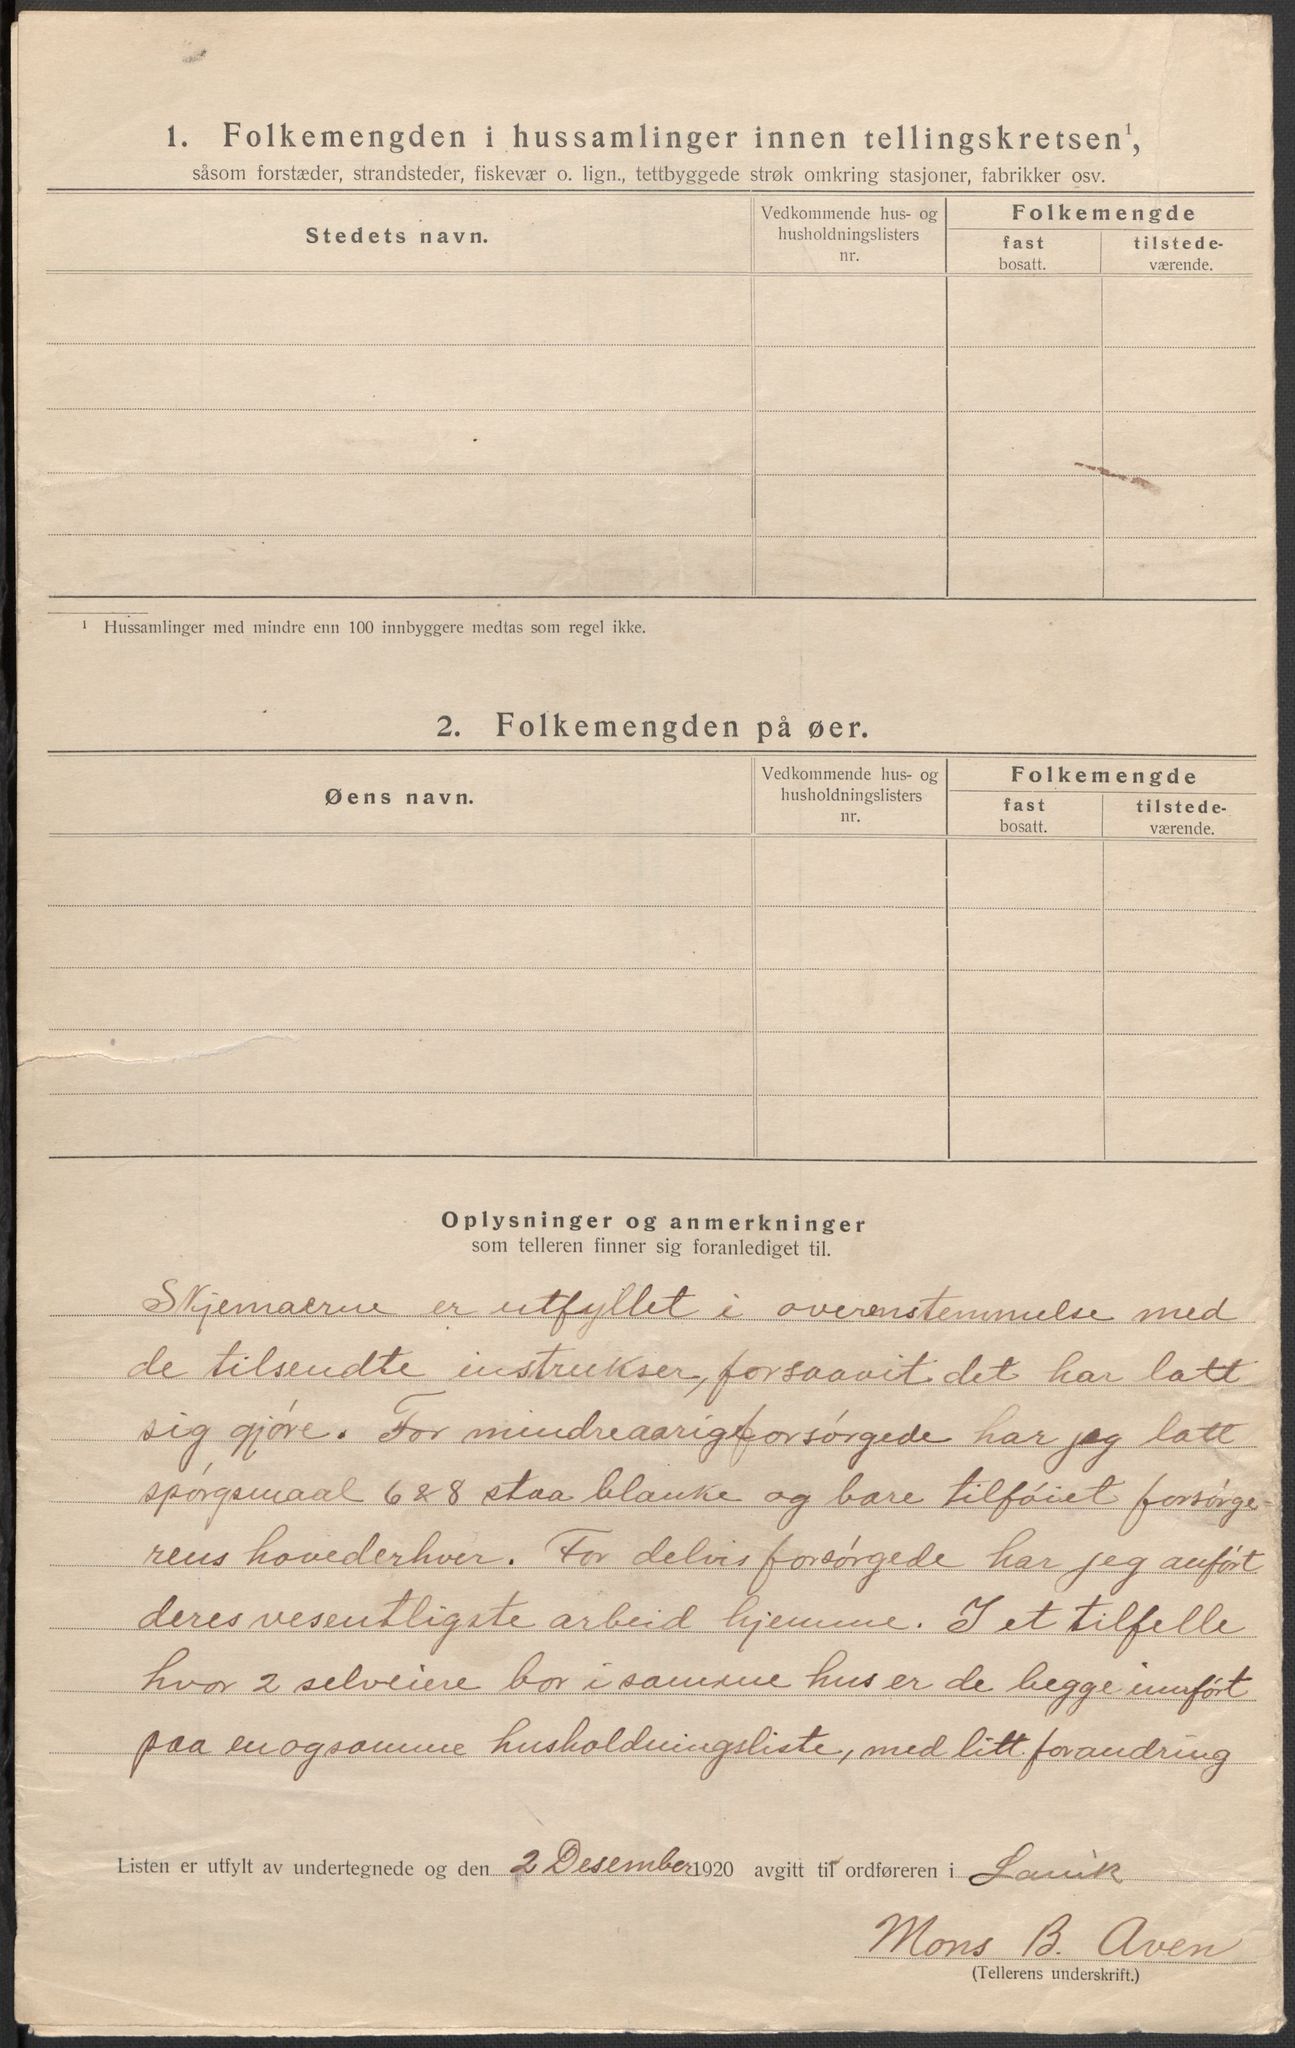 1. Folkemengden i hussamlinger innen tellingskretsen¹,
såsom forstæder, strandsteder, fiskevær o. lign., tettbyggede strøk omkring stasjoner, fabrikker osv.
Stedets navn.
Vedkommende hus- og
husholdningslisters
nr.
Folkemengde
fast
bosatt.
tilstede-
værende.
¹ Hussamlinger med mindre enn 100 innbyggere medtas som regel ikke.
2. Folkemengden på øer.
Øens navn.
Vedkommende hus- og
husholdningslisters
nr.
Folkemengde
fast
bosatt.
tilstede-
værende.
Oplysninger og anmerkninger
som telleren finner sig foranlediget til.
Skjemaerne er utfyllet i overenstemmelse med
de tilsendte instrukser, forsaavit det har latt
sig gjøre. For mindreaarige forsørgede har jeg latt
spørgsmaal 6 & 8 staa blanke og bare tilføiet forsørge-
rens hovederhver. For delvis forsørgede har jeg anført
deres vesentligste arbeid hjemme. I et tilfelle
hvor 2 selveiere bor i samme hus er de begge innført
paa en og samme husholdningsliste, med litt forandring
Listen er utfylt av undertegnede og den 2 Desember 1920 avgitt til ordføreren i
Mons B. Aven
(Tellerens underskrift.)